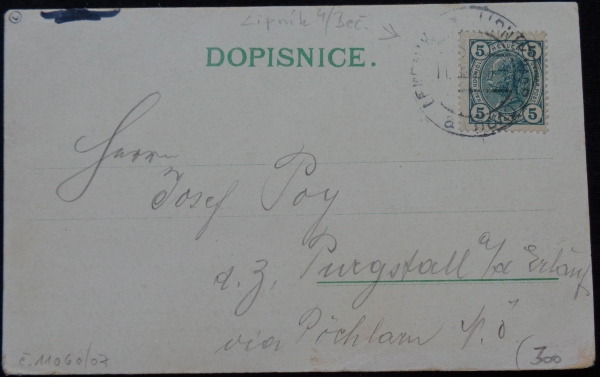 Lipník n/Beč.
DOPISNICE.
5 5
5 5
Herrn
Josef Poy
d. Z. Purgstall a/d Erlauf
via Pöchlarn N. Ö.
č. 11060/07
300